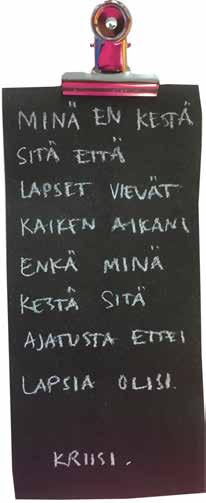 MINÄ EN KESTÄ
SITÄ ETTÄ
LAPSET VIEVÄT
KAIKEN AIKANI
ENKÄ MINÄ
KESTÄ SITÄ
AJATUSTA ETTEI
LAPSIA OLISI.
KRIISI.